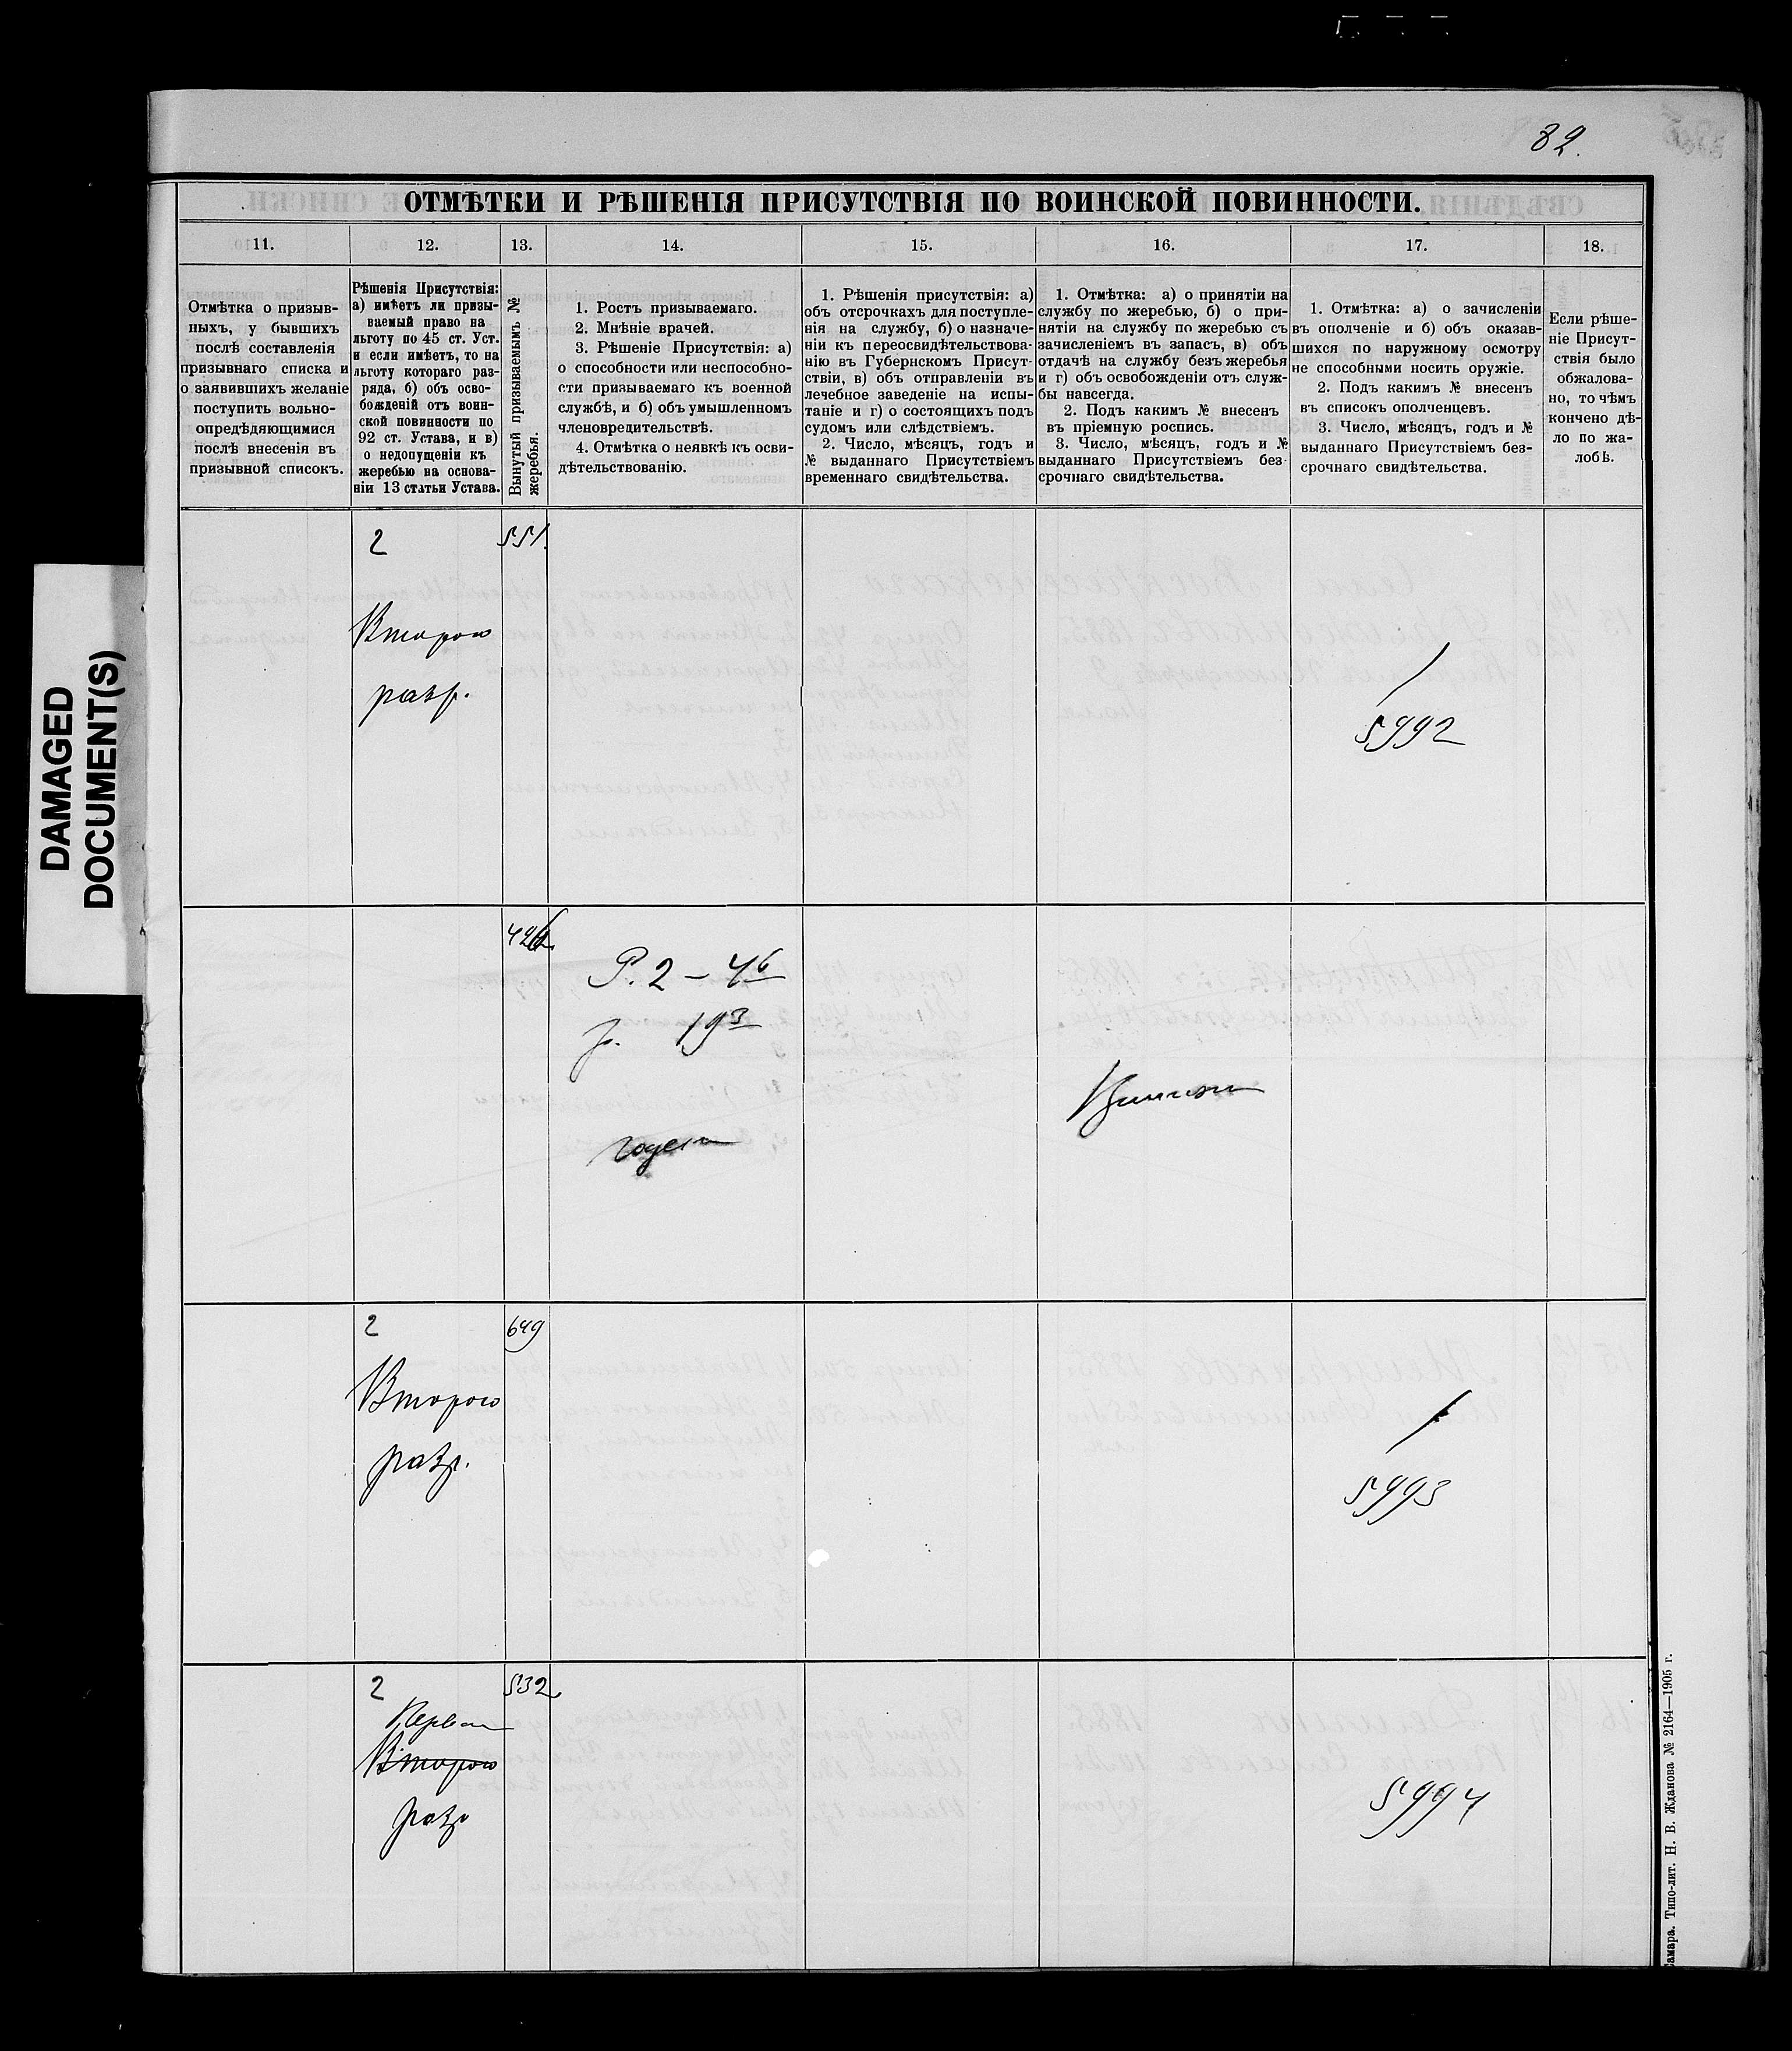 82.
ОТМѢТКИ И РѢШЕНІЯ ПРИСУТСТВІЯ ПО ВОИНСКОЙ ПОВИННОСТИ.
11.
12.
13.
14.
15.
16.
17.
18.
Отмѣтка о призыв-
ныхъ, у бывшихъ
послѣ составленія
призывнаго списка и
о заявившихъ желаніе
поступить вольно-
опредѣляющимися
послѣ внесенія въ
призывной списокъ.
Рѣшенія Присутствія:
а) имѣетъ ли призы-
ваемый право на
льготу по 45 ст. Уст.
и если имѣетъ, то на
льготу котораго раз-
ряда, б) объ осво-
божденій отъ воин-
ской повинности по
92 ст. Устава, и в)
о недопущеніи къ
жеребью на основа-
ніи 13 статьи Устава.
Вынутый призываемымъ №
жеребья.
1. Ростъ призываемаго.
2. Мнѣніе врачей.
3. Рѣшеніе Присутствія: а)
о способности или неспособно-
сти призываемаго къ военной
службѣ, и б) объ умышленномъ
членовредительствѣ.
4. Отмѣтка о неявкѣ къ осви-
дѣтельствованію.
1. Рѣшенія присутствія: а)
объ отсрочкахъ для поступле-
нія на службу, б) о назначе-
ніи къ переосвидѣтельствова-
нію въ Губернскомъ Присут-
ствіи, в) объ отправленіи въ
лечебное заведеніе на испы-
таніе и г) о состоящихъ подъ
судомъ или слѣдствіемъ.
2. Число, мѣсяцъ, годъ и
№ выданнаго Присутствіемъ
временнаго свидѣтельства.
1. Отмѣтка: а) о принятіи на
службу по жеребью, б) о при-
нятіи на службу по жеребью съ
зачисленіемъ въ запасъ, в) объ
отдачѣ на службу безъ жеребья
и г) объ освобожденіи отъ служ-
бы навсегда.
2. Подъ какимъ № внесенъ
въ пріемную роспись.
3. Число, мѣсяцъ, годъ и №
выданнаго Присутствіемъ без-
срочнаго свидѣтельства.
1. Отмѣтка: а) о зачисленіи
въ ополченіе и б) объ оказав-
шихся по наружному осмотру
не способными носить оружіе.
2. Подъ какимъ № внесенъ
въ списокъ ополченцевъ.
3. Число, мѣсяцъ, годъ и №
выданнаго Присутствіемъ без-
срочнаго свидѣтельства.
Если рѣше-
ніе Присут-
ствія было
обжалова-
но, то чѣмъ
кончено дѣ-
ло по жа-
лобѣ.
2
551.
Второго
разр.
5992
Р. 2 – 4 6
г. 19 3
годенъ
Принятъ
2
649
Второго
разр.
5993
2
532
Второго
разр
5994
DAMAGED
DOCUMENT(S)
Самара. Типо-лит. Н. В. Жданова № 2164—1905 г.